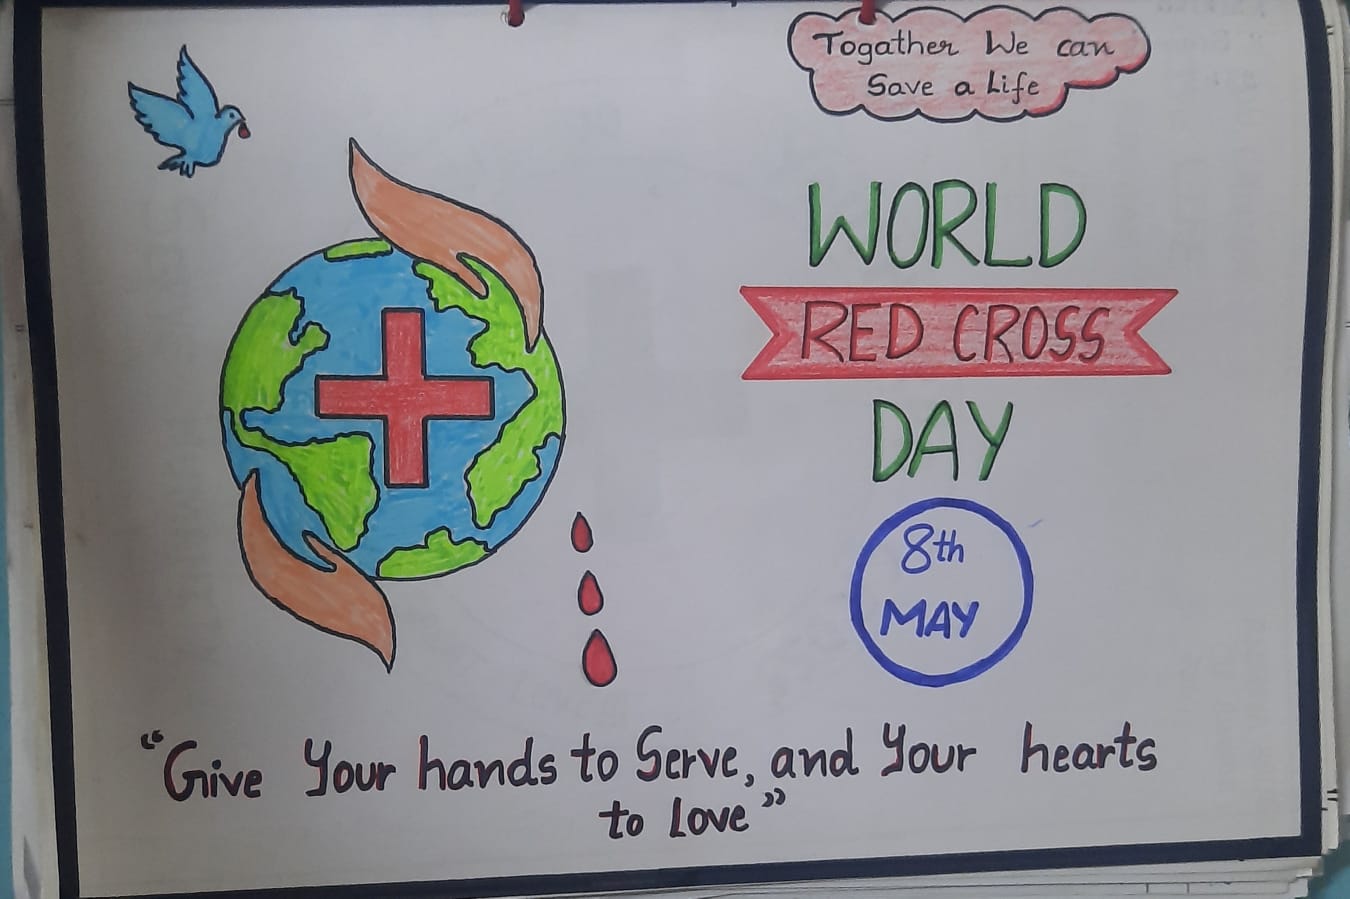 Togather We can
Save a Life
WORLD
RED CROSS
DAY
8th
MAY
“Give Your hands to Serve, and Your hearts
to Love”